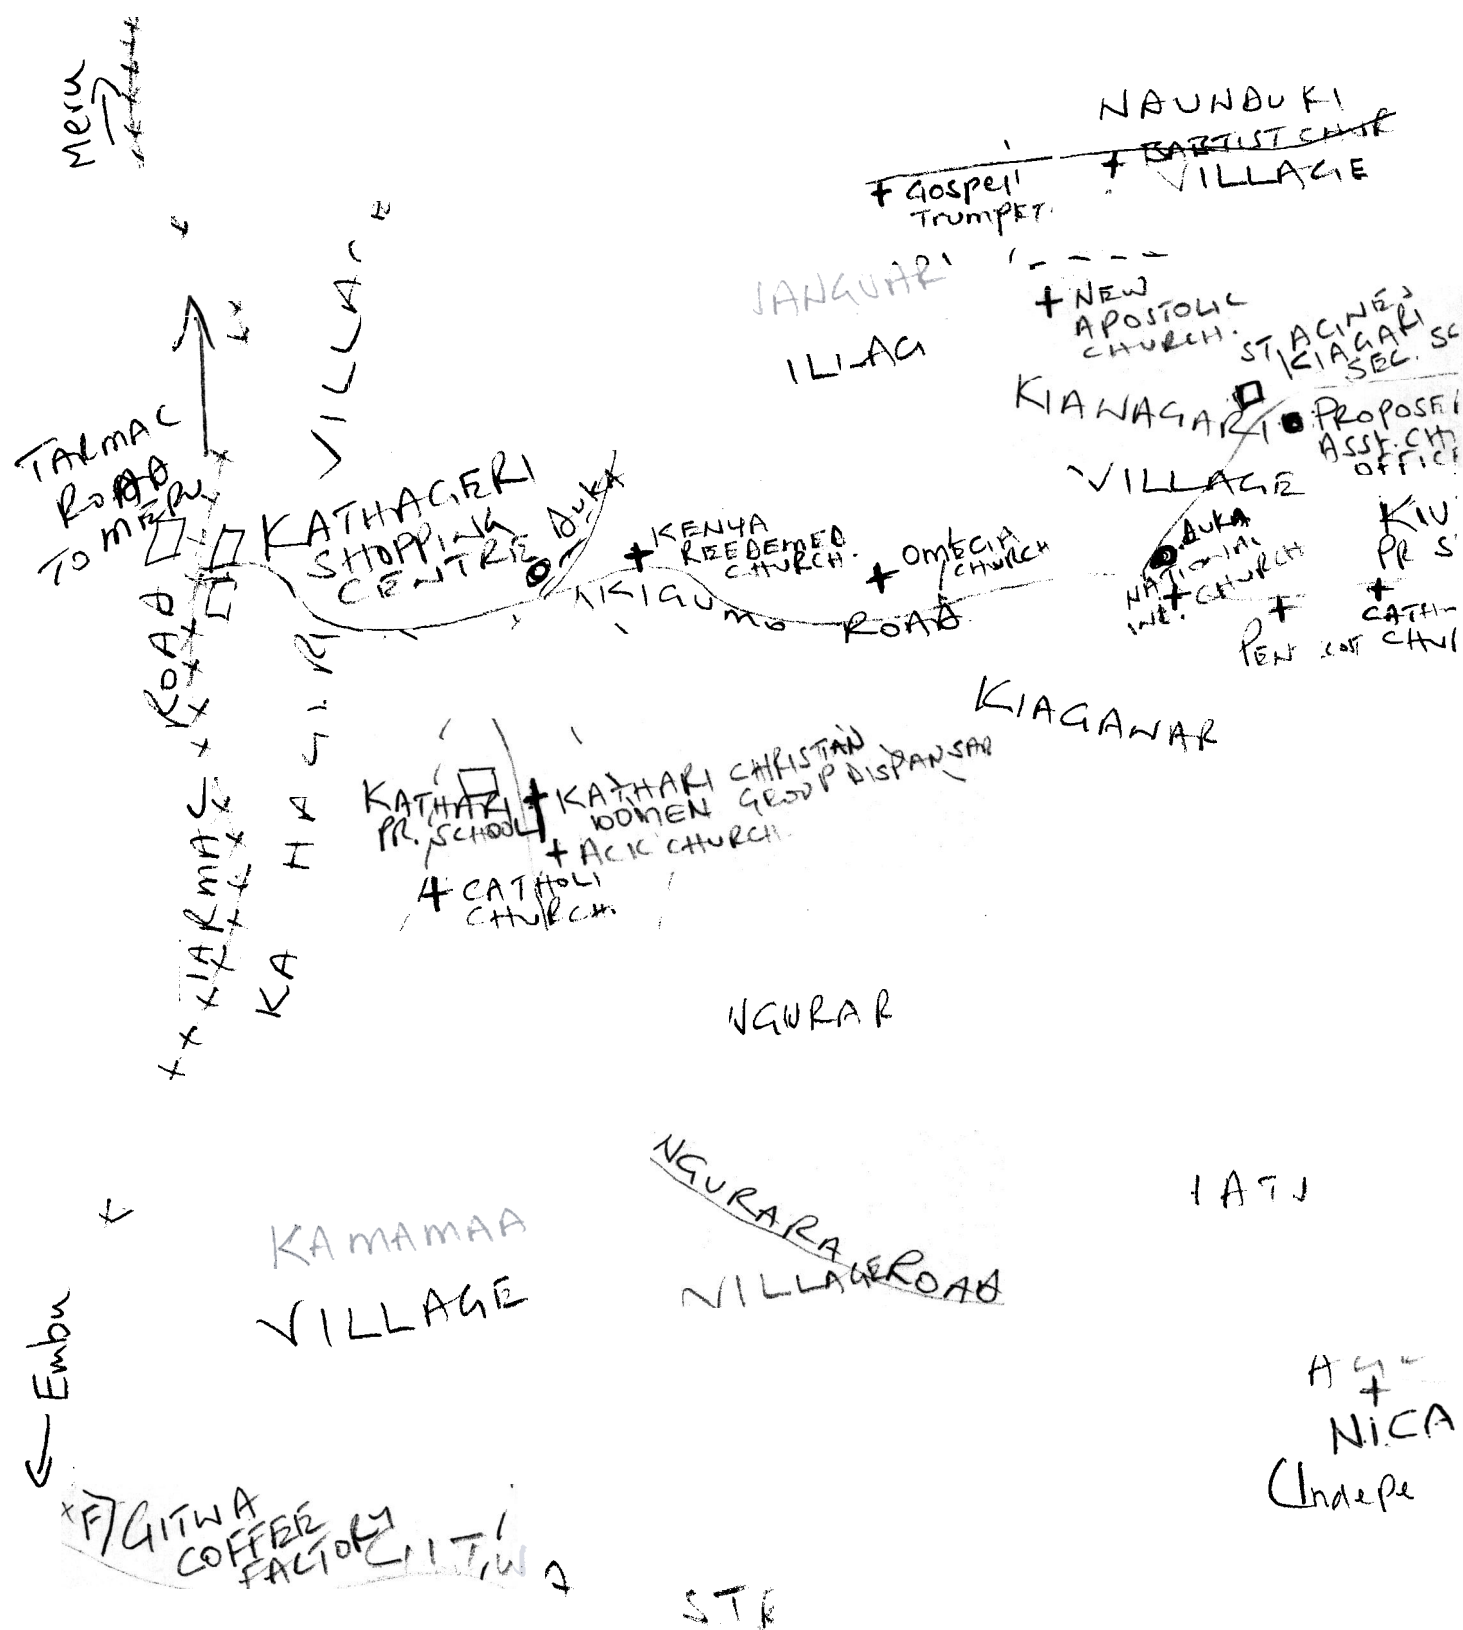 Meru
NAUNDUKI
BAPTIST CHUR
VILLAGE
Gospel
TRUMPET.
NEW
APOSTOLIC
CHURCH.
ILLAG
ST. AGNES
KIAGARI
SEC. SC
KIANAGARI
VILLAGE
PROPOSE
ASST. CH
OFFIC
TARMAC
ROAD
TO MERU
KATHAGERI
SHOPPING
CENTRE
DUKA
KENYA
REEDEMED
CHURCH.
OMEGA
CHURCH
DUKA
NATIONAL
CHURCH
KIU
PR S
CATH
CHU
PEN
KIGUMO
ROAD
ROAD
TARMAC
KIAGAWAR
KATHARI
PR. SCHOOL
KATHARI CHRISTIAN
WOMEN GROUP DISPANSAR
ACK CHURCH
CATHOLI
CHURCH.
NGURAR
NGURARA
VILLAGE ROAD
IAT
KAMAMAA
VILLAGE
Embu
NICA
(Indepe
F) GITWA
COFFEE
FACTORY